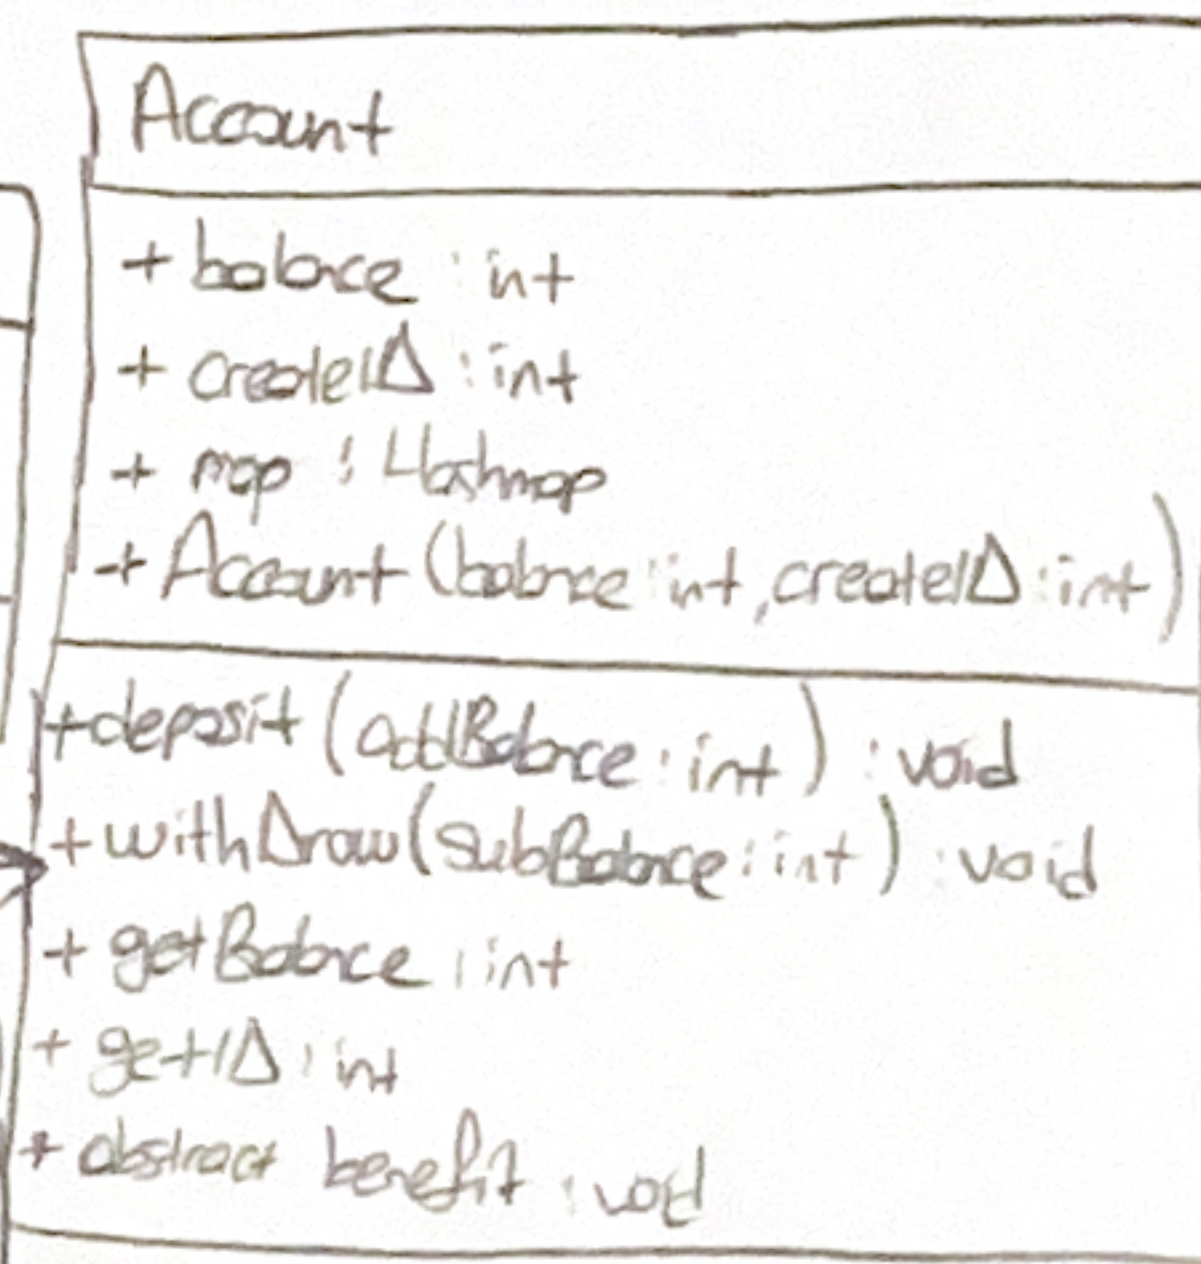 Account
+ balance : int
+ createID : int
+ map : Hashmap
+ Account (balance : int, createID : int)
+ deposit (addBalance : int) : void
+ withDraw (subBalance : int) : void
+ getBalance : int
+ getID : int
+ abstract benefit : void